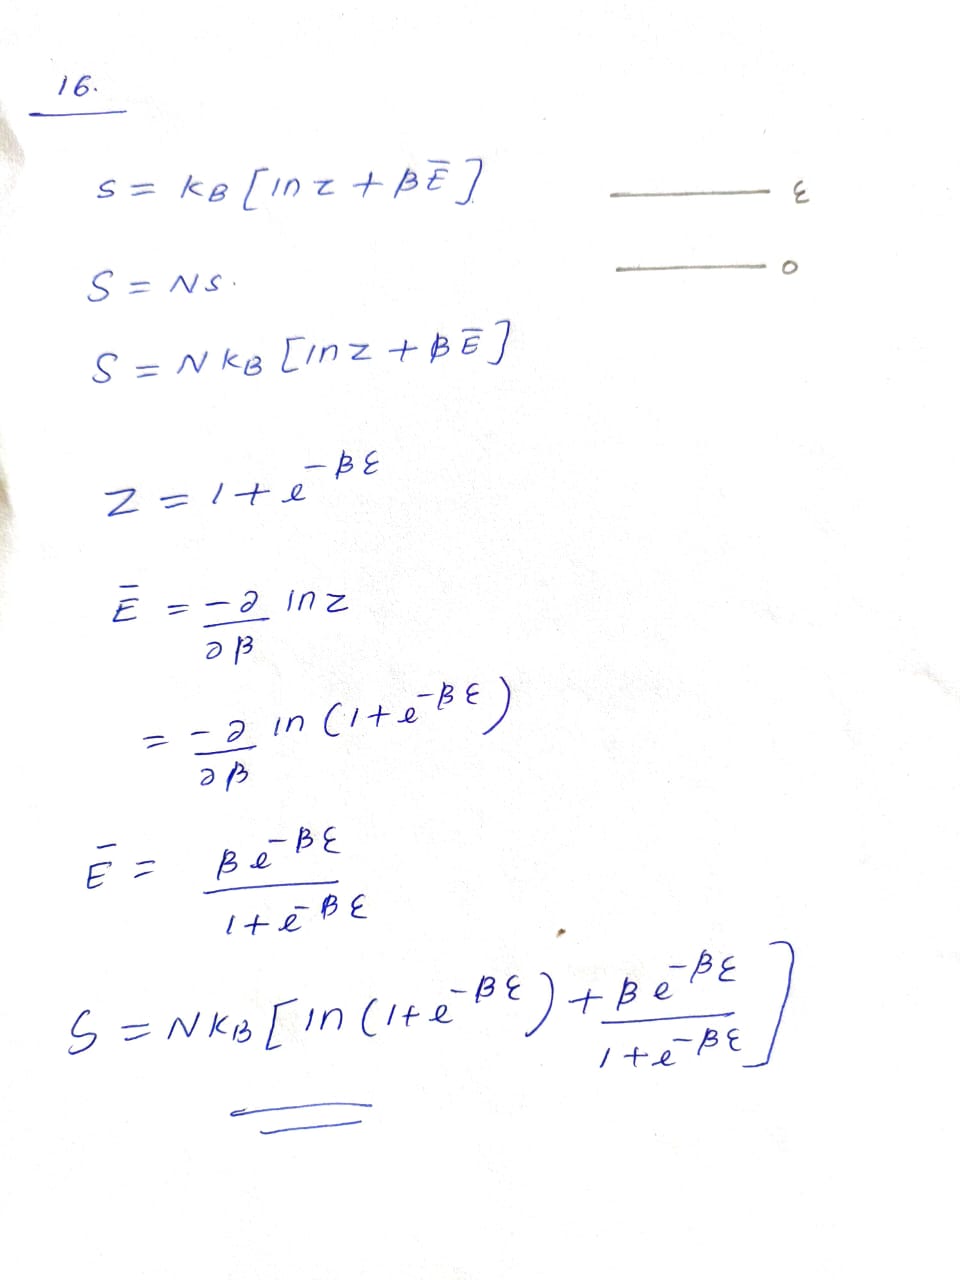 16.
s = kB [ln z + βĒ]
ε
0
S = Ns.
S = N kB [ln z + βĒ]
Z = 1 + e^-βε
Ē = -∂/∂β ln z
= -∂/∂β ln (1 + e^-βε)
Ē = βe^-βε / 1 + e^-βε
S = N kB [ln (1 + e^-βε) + βe^-βε / 1 + e^-βε]